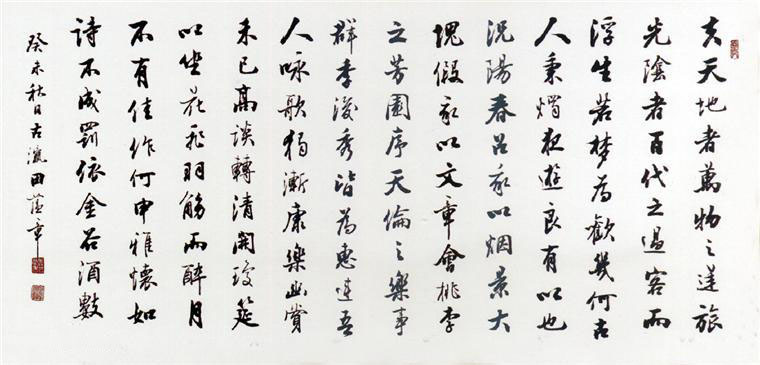 夫天地者萬物之逆旅
光陰者百代之過客而
浮生若夢為歡幾何古
人秉燭夜遊良有以也
況陽春召我以烟景大
塊假我以文章會桃李
之芳園序天倫之樂事
群季俊秀皆為惠連吾
人咏歌獨慚康樂幽賞
未已高談轉清開瓊筵
以坐花飛羽觴而醉月
不有佳作何申雅懷如
詩不成罰依金谷酒數
癸未秋日古瀛田蘊章